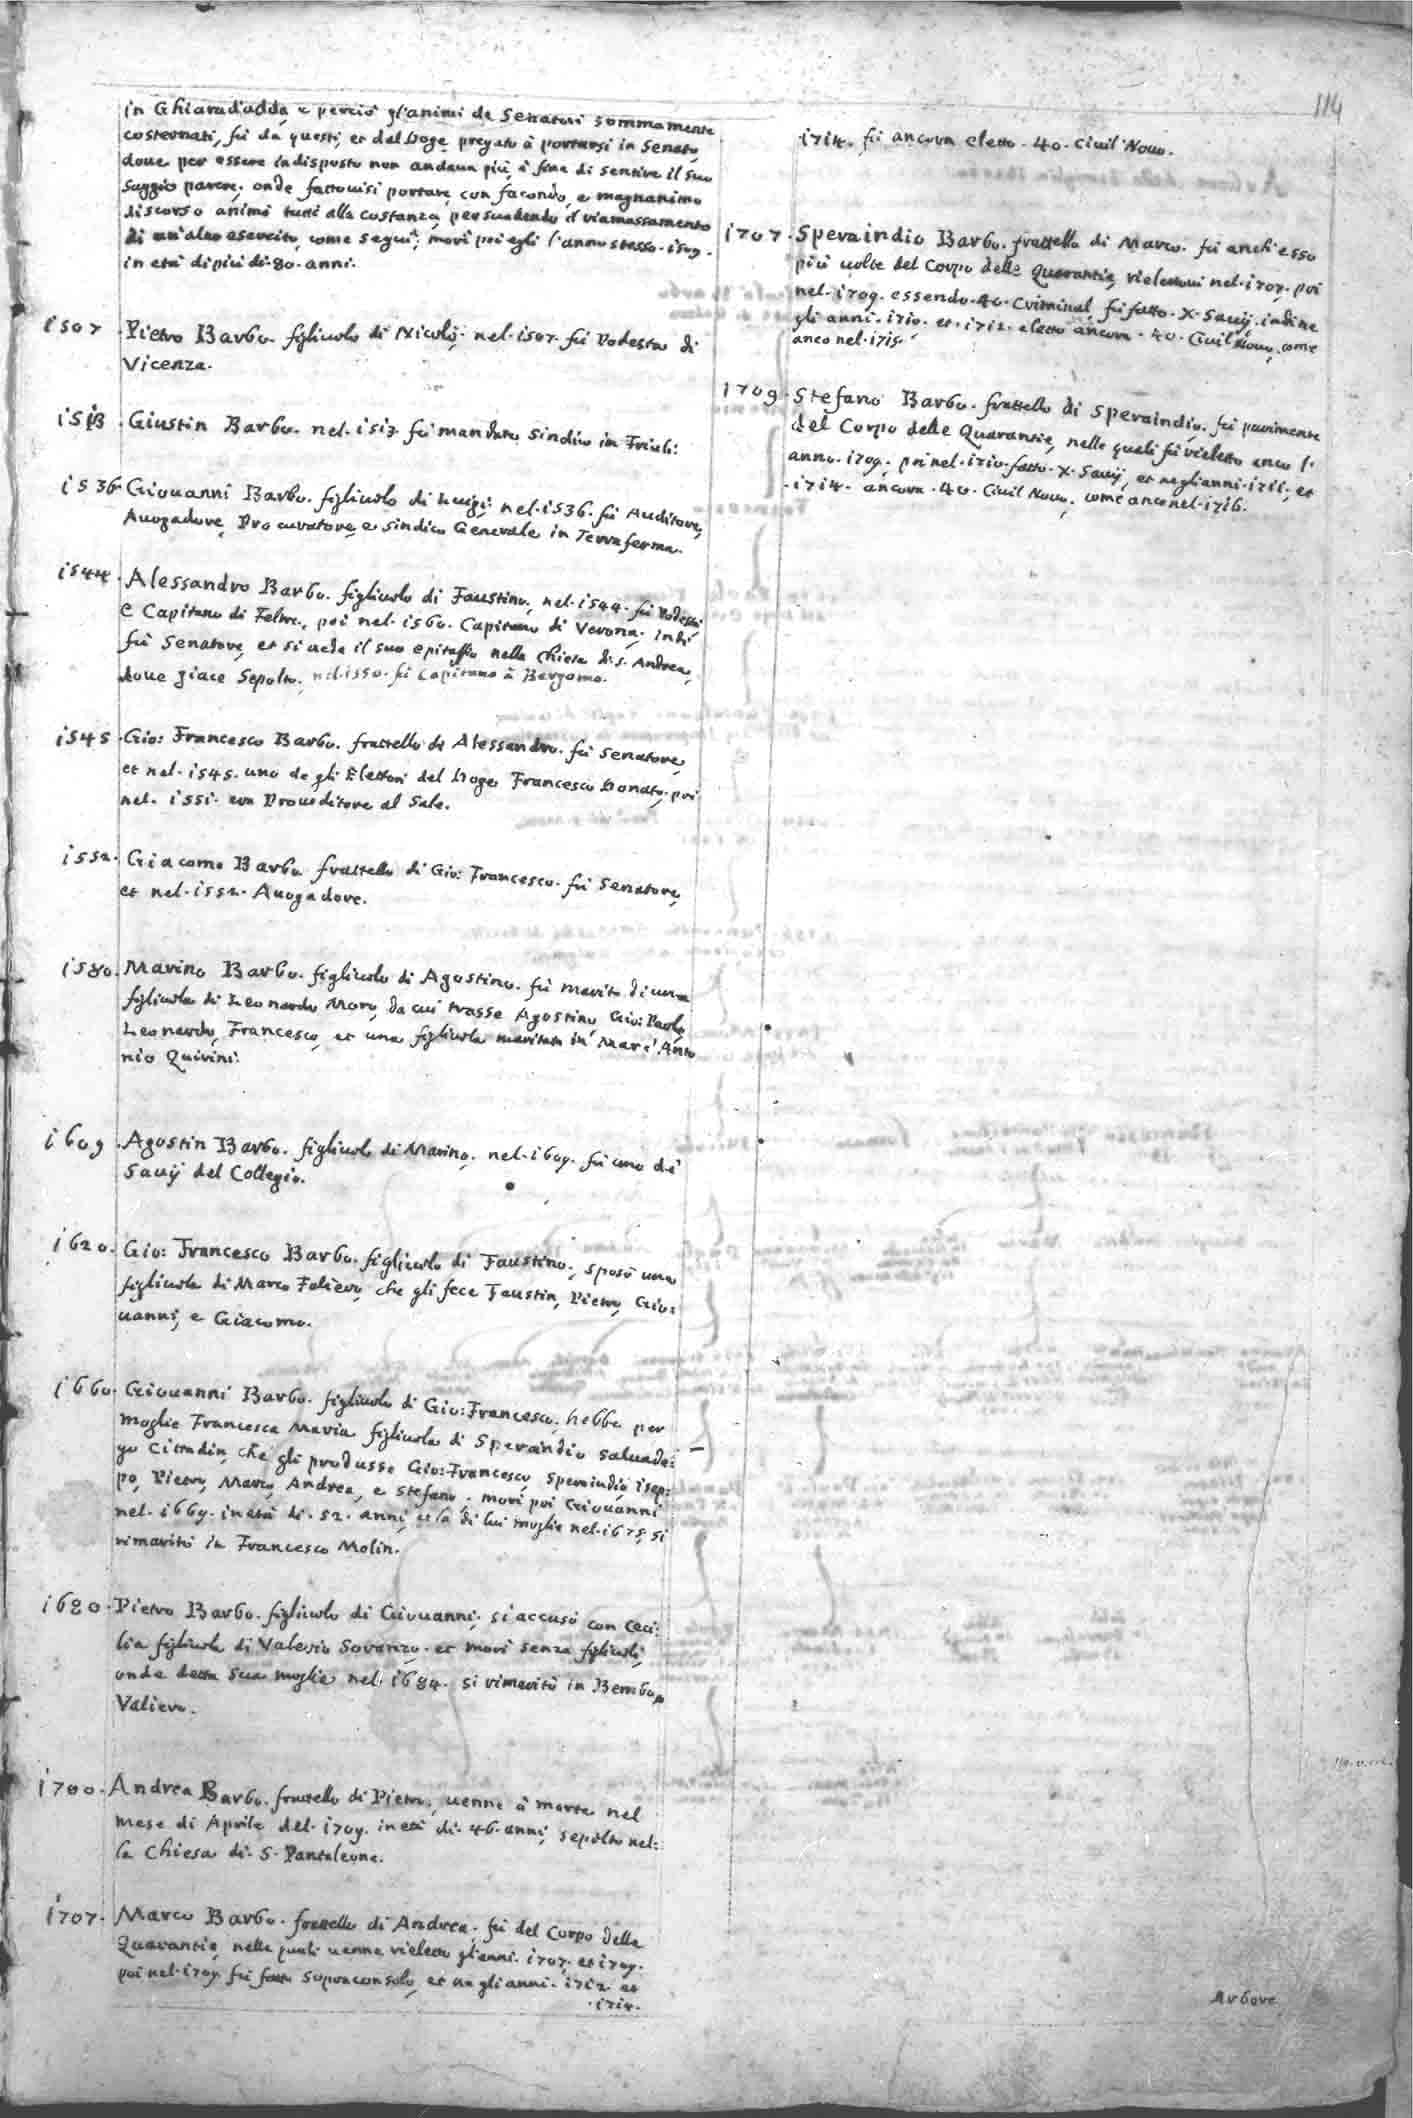 114
in Ghiaradadda, e perciò gl'animi de Senatori sommamente
costernati, fù da questi, et dal Doge pregato à portarsi in Senato,
doue per essere indisposto non andaua più, à fine di sentire il suo
saggio parere, onde fattouisi portare, con facondo, e magnanimo
discorso animò tutti alla costanza, persuadendo il riamassamento
di un'altro esercito, come seguì; morì poi egli l'anno stesso. 1509.
in età di più di. 80. anni.
1507. Pietro Barbo. figliuolo di Nicolò; nel. 1507. fù Podestà di
Vicenza.
1513. Giustin Barbo. nel. 1513. fù mandato Sindico in Friuli.
1536. Giouanni Barbo. figliuolo di Luigi; nel. 1536. fù Auditore,
Auogadore, Procuratore, e Sindico Generale in Terra ferma.
1544. Alessandro Barbo. figliuolo di Faustino, nel. 1544. fù Podestà
e Capitano di Feltre, poi nel. 1560. Capitano di Verona; indi
fù Senatore, et si uede il suo epitaffio nella Chiesa di S. Andrea,
doue giace sepolto. nel. 1550. fù Capitano à Bergamo.
1545. Gio: Francesco Barbo. frattello di Alessandro. fù Senatore,
et nel. 1545. uno degli Elettori del Doge Francesco Donato, poi
nel. 1551. era Proueditore al Sale.
1552. Giacomo Barbo frattello di Gio: Francesco. fù Senatore,
et nel. 1552. Auogadore.
1580. Marino Barbo. figliuolo di Agostino. fù marito di una
figliuola di Leonardo Moro, da cui trasse Agostino, Gio: Paolo,
Leonardo, Francesco, et una figliuola maritata in Marc' Anto
nio Quirini.
1609. Agostin Barbo. figliuolo di Marino, nel. 1609. fù uno dei
Sauij del Collegio.
1620. Gio: Francesco Barbo. figliuolo di Faustino; sposò una
figliuola di Marco Falier, che gli fece Faustin, Pietro, Gio:
uanni, e Giacomo.
1660. Giouanni Barbo. figliuolo di Gio: Francesco, hebbe per
moglie Francesca Maria figliuola di Speraindio Saluade:
go Cittadin, che gli produsse Gio: Francesco, Speraindio, Isep:
po, Pietro, Marco, Andrea, e Stefano. morì poi Giouanni
nel. 1669. in età di. 52. anni, et la di lui moglie nel. 1675. si
rimaritò in Francesco Molin.
1680. Pietro Barbo. figliuolo di Giouanni; si accasò con Ceci:
lia figliuola di Valerio Soranzo. et morì senza figliuoli,
onde detta sua moglie nel. 1684. si rimaritò in Bembo
Valiero.
1700. Andrea Barbo. frattello di Pietro, uenne à morte nel
mese di Aprile del. 1709. in età di. 46. anni, sepolto nel:
la Chiesa di. S. Pantaleone.
1707. Marco Barbo. frattello di Andrea. fù del Corpo delle
Quarantie, nelle quali uenne rieletto gl'anni. 1707. et 1709.
poi nel. 1709. fù fatto Sopraconsolo, et negli anni. 1712. et
.1714.
.1714. fù ancora eletto. 40. Ciuil Nouo.
1707. Speraindio Barbo. frattello di Marco. fù anch'esso
più uolte del Corpo delle Quarantie, rielettoui nel. 1707. poi
nel. 1709. essendo. 40. Criminal, fù fatto. X. Sauij. indi ne
gli anni. 1710. et. 1712. eletto ancora. 40. Ciuil Nouo, come
anco nel. 1715.
1709. Stefano Barbo. frattello di Speraindio. fù parimente
del Corpo delle Quarantie, nelle quali fù rieletto anco l'
anno. 1709. poi nel. 1710. fatto. X. Sauij, et negli anni. 1711. et
.1714. ancora. 40. Ciuil Nouo, come anco nel. 1716.
Arbore